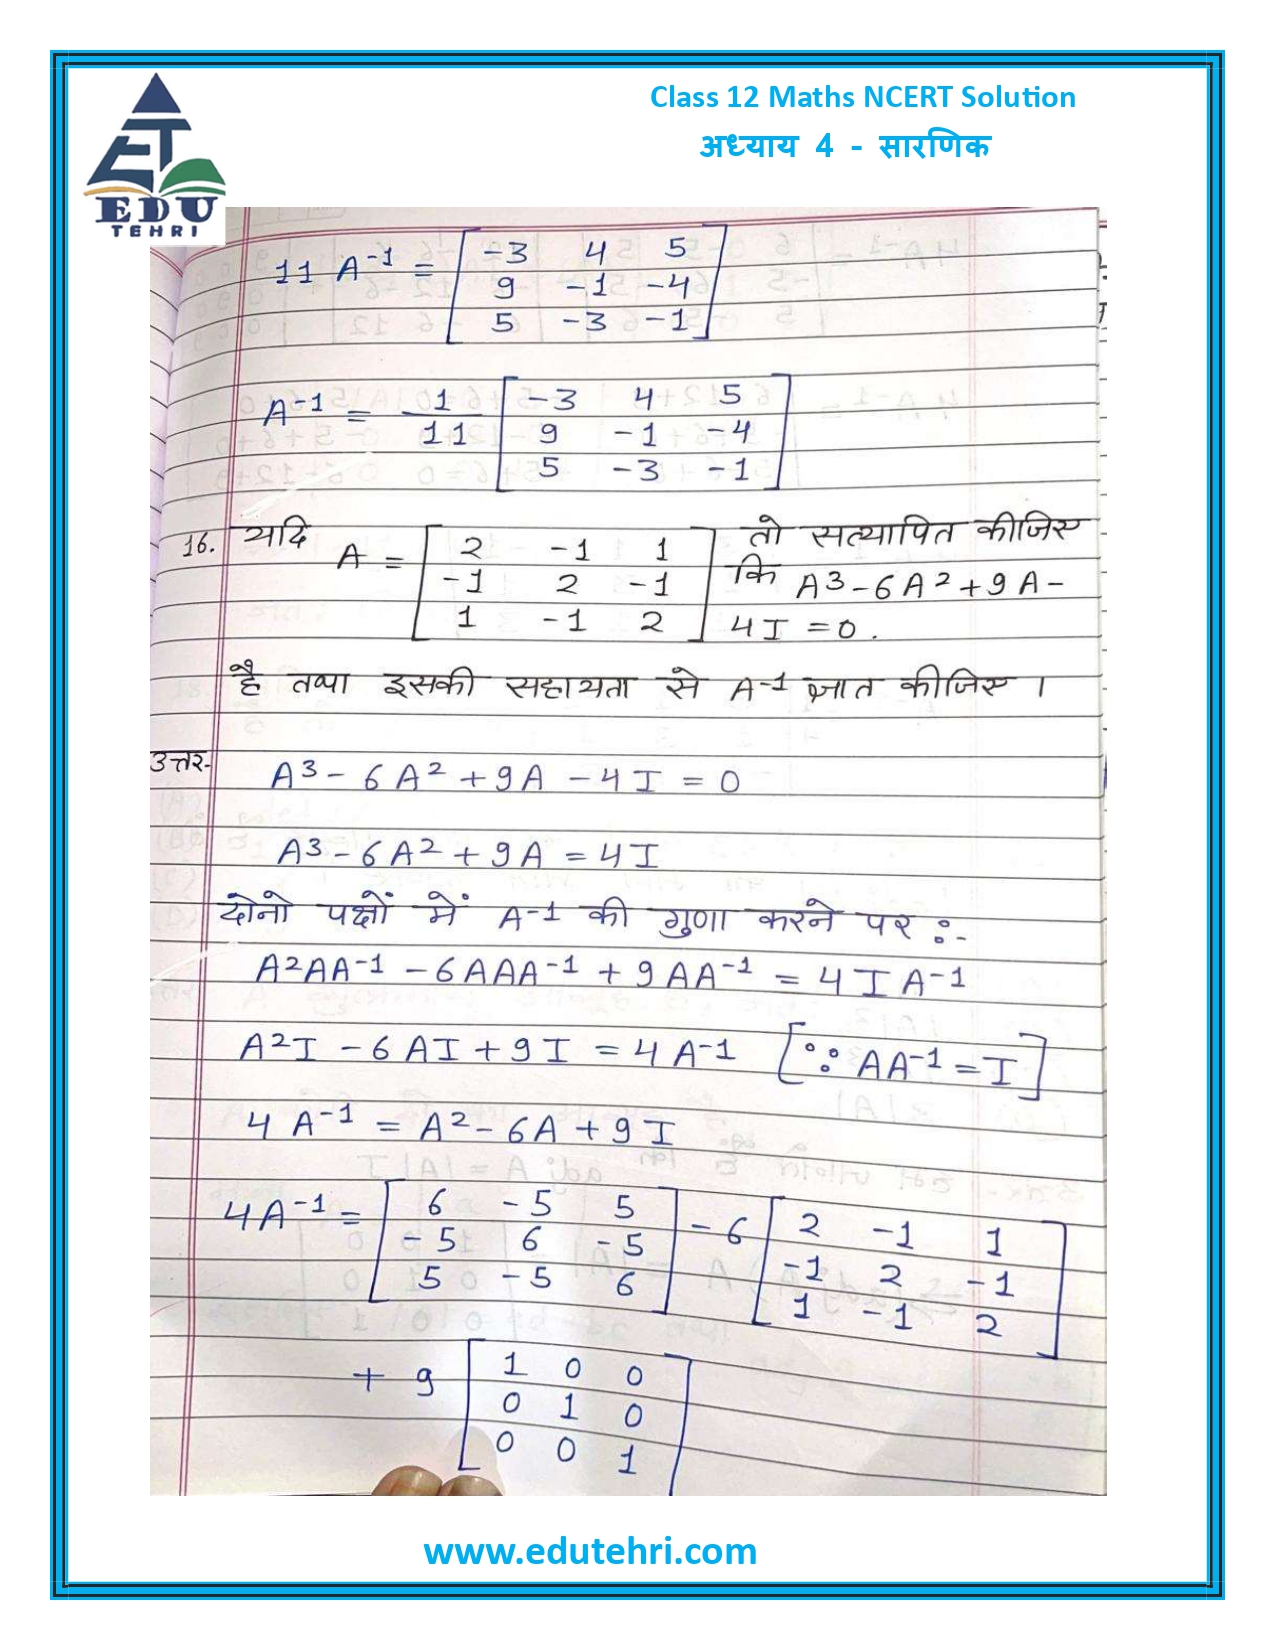 Class 12 Maths NCERT Solution
अध्याय 4 - सारणिक
EDU
TEHRI
11 A⁻¹ = [ -3 4 5
9 -1 -4
5 -3 -1 ]
A⁻¹ = 1/11 [ -3 4 5
9 -1 -4
5 -3 -1 ]
16. यदि A = [ 2 -1 1 तो सत्यापित कीजिए
-1 2 -1 कि A³ - 6A² + 9A -
1 -1 2 ] 4I = 0.
है तथा इसकी सहायता से A⁻¹ ज्ञात कीजिए ।
उत्तर- A³ - 6A² + 9A - 4I = 0
A³ - 6A² + 9A = 4I
दोनो पक्षों में A⁻¹ की गुणा करने पर :-
A²AA⁻¹ - 6AAA⁻¹ + 9AA⁻¹ = 4IA⁻¹
A²I - 6AI + 9I = 4A⁻¹ [∵ AA⁻¹ = I]
4A⁻¹ = A² - 6A + 9I
4A⁻¹ = [ 6 -5 5 ] - 6 [ 2 -1 1 ]
-5 6 -5 -1 2 -1
5 -5 6 1 -1 2
+ 9 [ 1 0 0
0 1 0
0 0 1 ]
www.edutehri.com